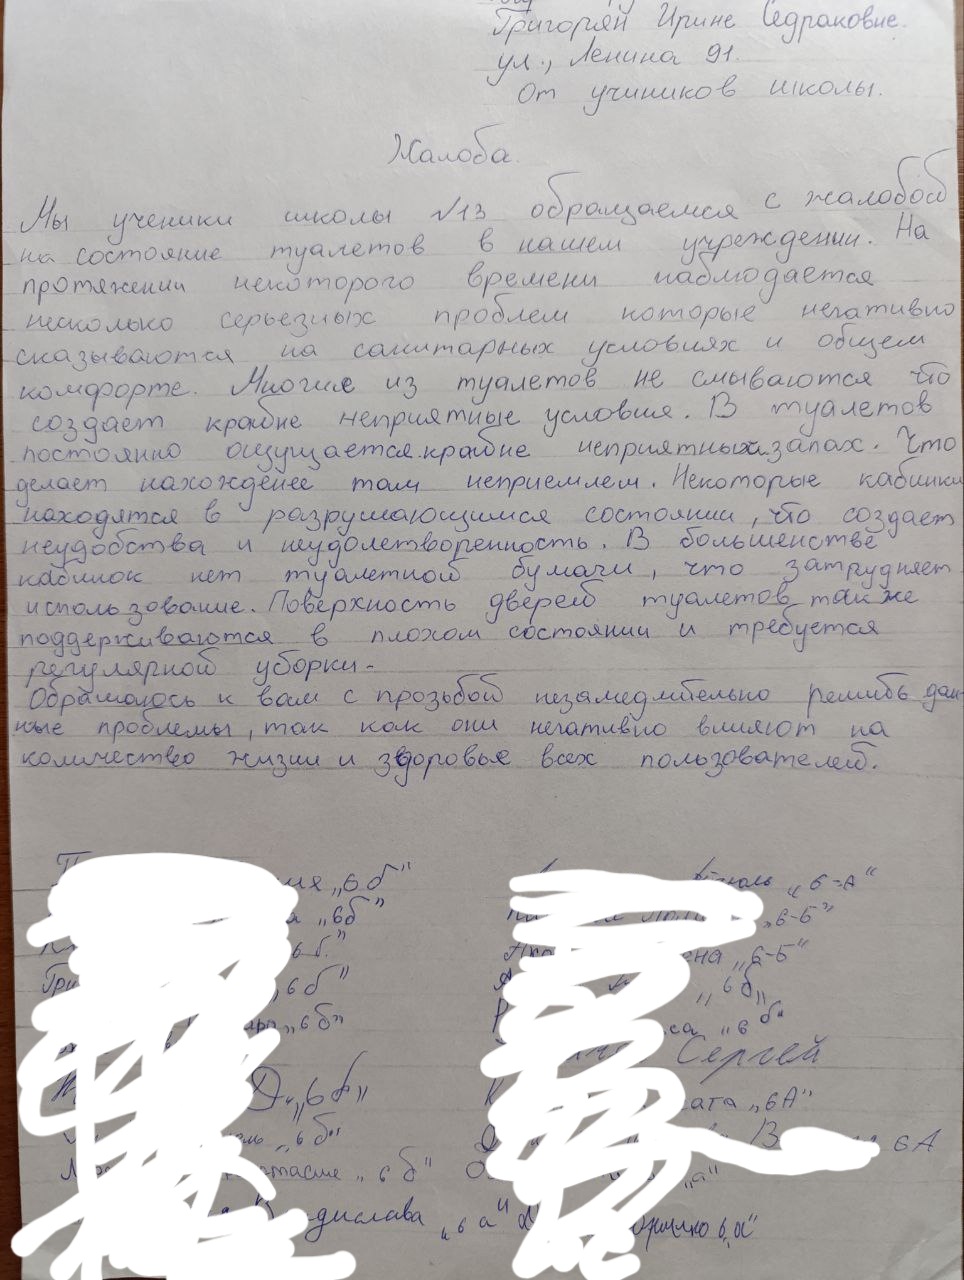 Григорян Ирине Седраковне.
ул., Ленина 91.
От учиников школы.
Жалоба.
Мы ученики школы №13 обращаемся с жалобой
на состояние туалетов в нашем учреждении. На
протяжении некоторого времени наблюдается
несколько серьезных проблем которые негативно
сказываются на санитарных условиях и общем
комфорте. Многие из туалетов не смываются что
создает крайне неприятные условия. В туалетов
постоянно ощущается крайне неприятных запах. Что
делает нахождение там неприемлем. Некоторые кабинки
находятся в разрушающимся состоянии, что создает
неудобства и неудолетворенность. В большенстве
кабинок нет туалетной бумаги, что затрудняет
использование. Поверхность дверей туалетов также
поддерживаются в плохом состоянии и требуется
регулярной уборки.
Обращаюсь к вам с прозьбой незамедлительно решить дан-
ные проблемы, так как они негативно влияют на
количество жизни и здоровье всех пользователей.
„6 б" „6-А"
„6б" „6-Б"
6 б." „6-Б"
„6 б" „6б„
„6б" „6 б"
Сергей
Д. „6 б" „6А"
„6 б" В 6А
„6 б" „а"
„6 а" 6„а"